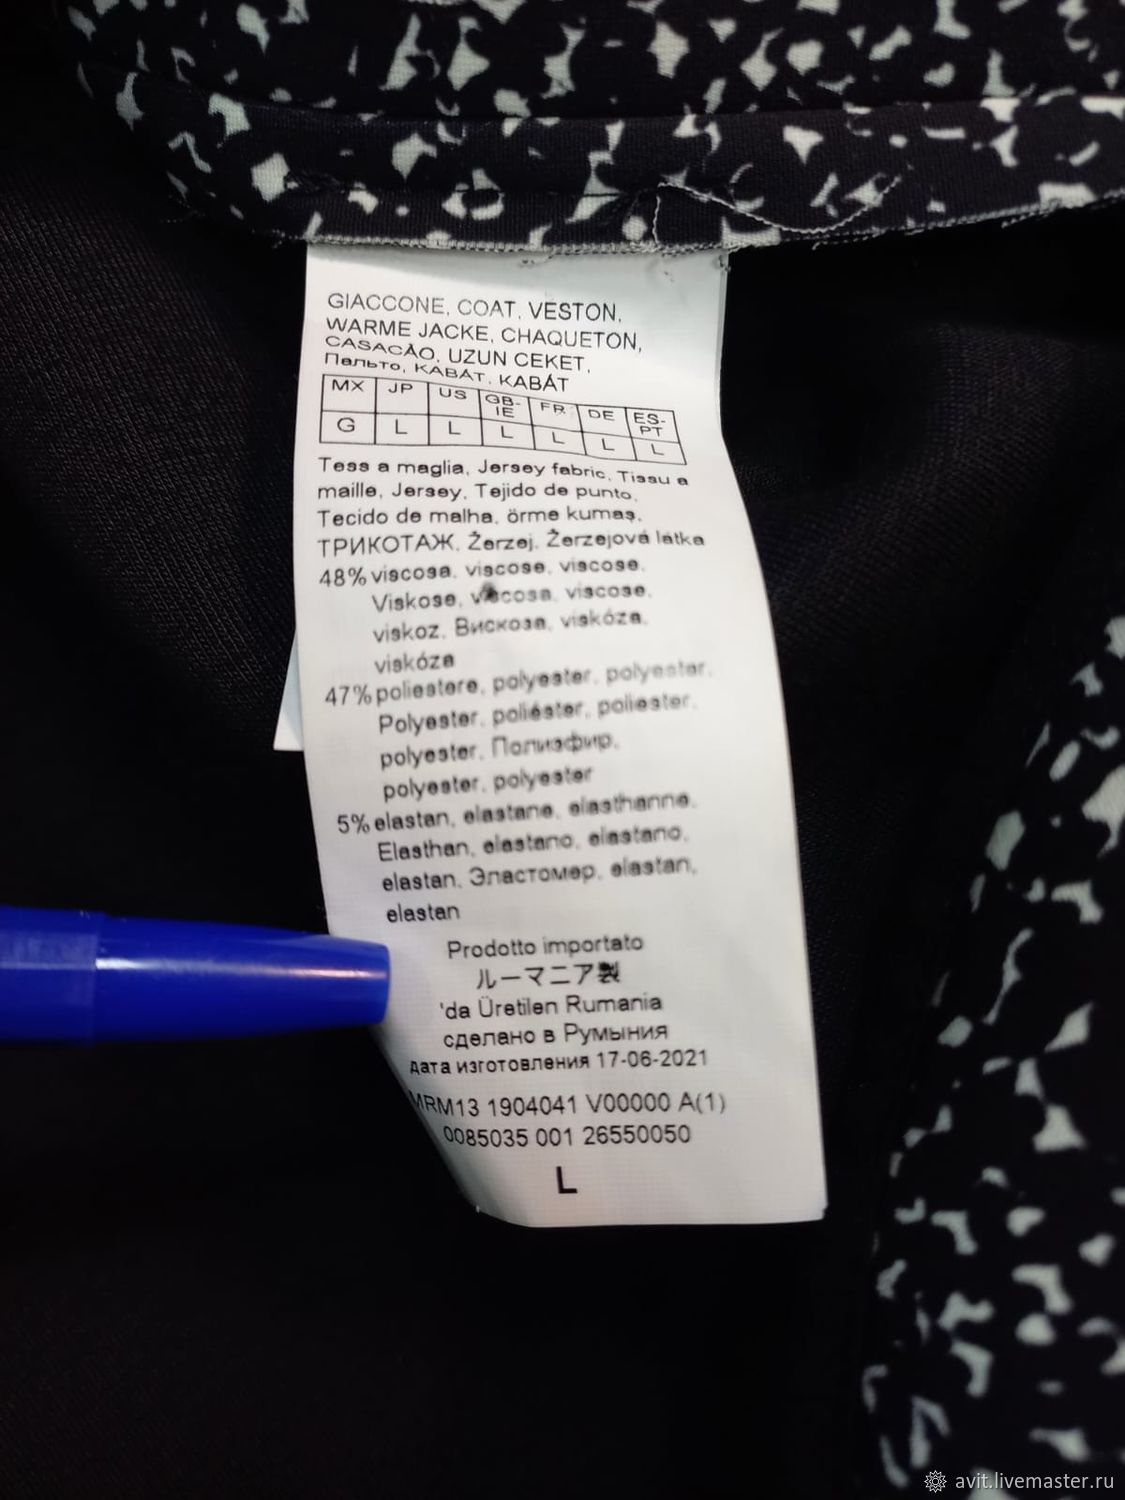 GIACCONE, COAT, VESTON,
WARME JACKE, CHAQUETON,
CASACÃO, UZUN CEKET,
Пальто, KABÁT, KABÁT
MX JP US GB-IE FR DE ES-PT
G L L L L L L
Tess a maglia, Jersey fabric, Tissu a
maille, Jersey, Tejido de punto,
Tecido de malha, örme kumaş,
ТРИКОТАЖ, Žerzej, Žerzejová látka
48% viscosa, viscose, viscose,
Viskose, viscosa, viscose,
viskoz, Вискоза, viskóza,
viskóza
47% poliestere, polyester, polyester,
Polyester, poliéster, poliester,
polyester, Полиэфир,
polyester, polyester
5% elastan, elastane, elasthanne,
Elasthan, elastano, elastano,
elastan, Эластомер, elastan,
elastan
Prodotto importato
ルーマニア製
'da Üretilen Rumania
сделано в Румыния
дата изготовления 17-06-2021
MRM13 1904041 V00000 A(1)
0085035 001 26550050
L
avit.livemaster.ru